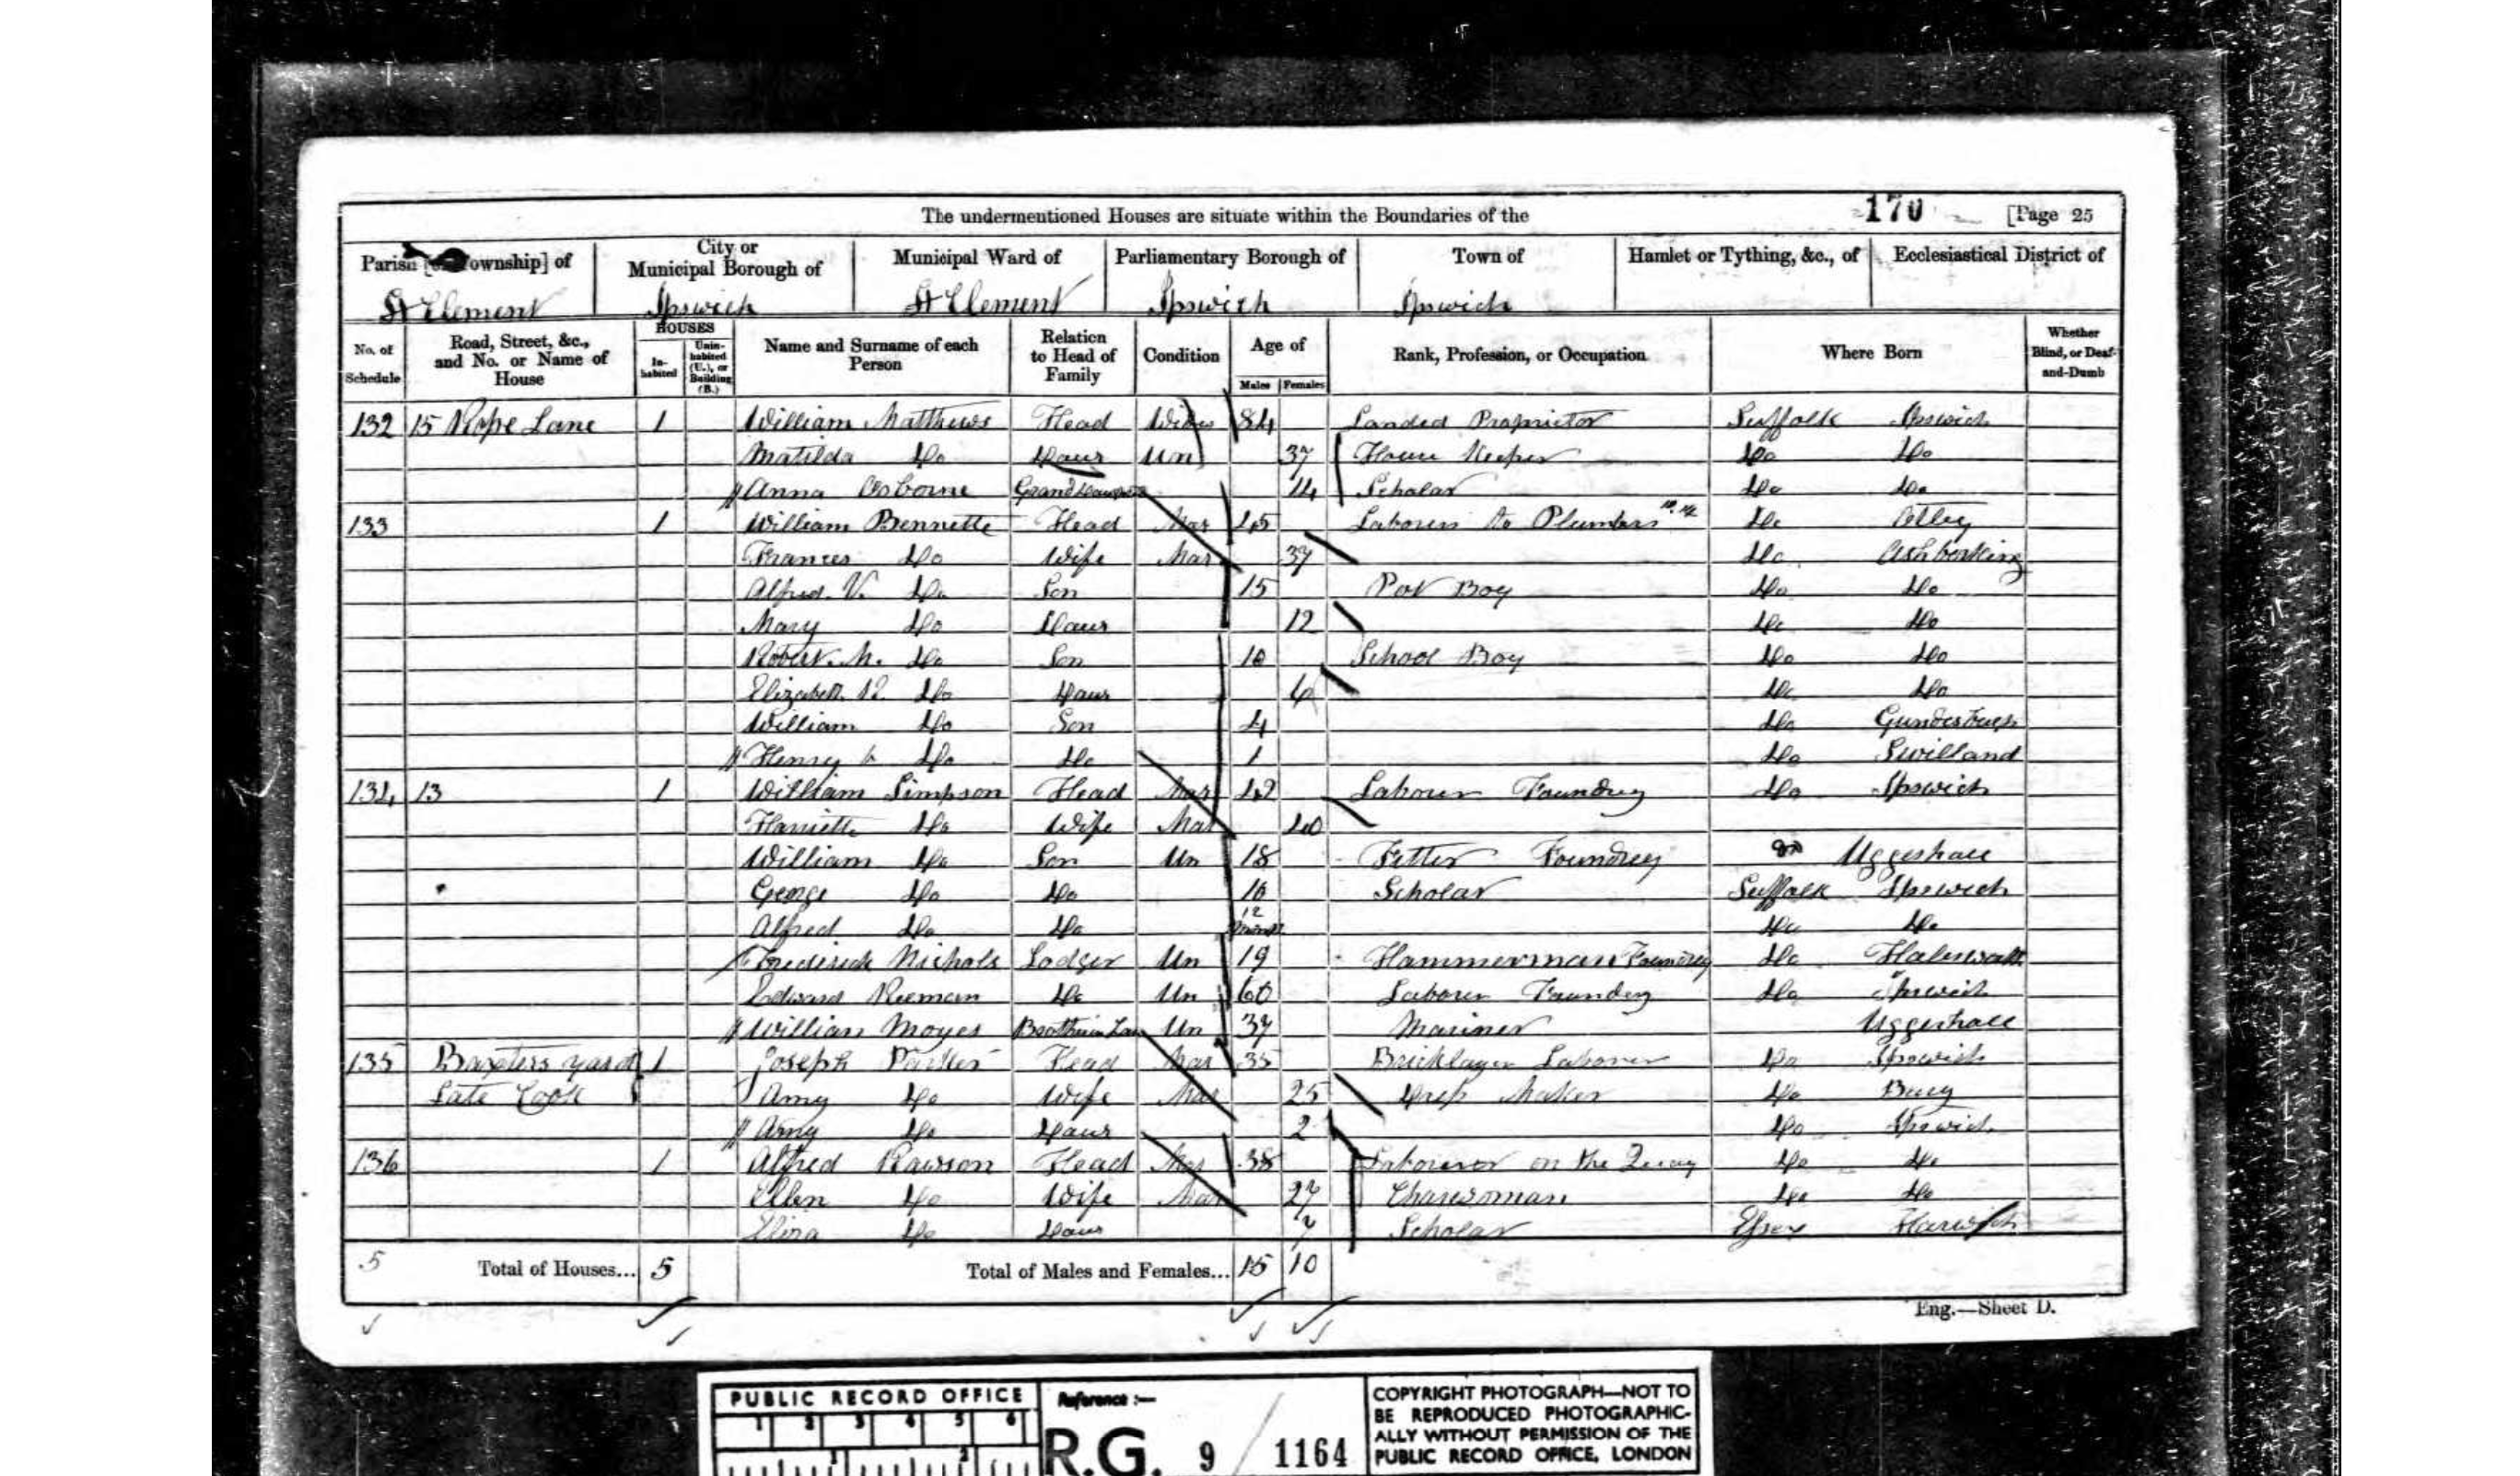 The undermentioned Houses are situate within the Boundaries of the 170 [Page 25
Parish [or Township] of City or Municipal Borough of Municipal Ward of Parliamentary Borough of Town of Hamlet or Tything, &c., of Ecclesiastical District of
St Clement Ipswich St Clement Ipswich Ipswich
No. of Schedule Road, Street, &c., and No. or Name of House HOUSES Inhabited Uninhabited (U.), or Building (B.) Name and Surname of each Person Relation to Head of Family Condition Age of Males Females Rank, Profession, or Occupation Where Born Whether Blind, or Deaf-and-Dumb
132 15 Rope Lane 1 William Matthews Head Widr 84 Landed Proprietor Suffolk Ipswich
Matilda Do Daur Un 37 House Keeper Do Do
Anna Osborne 14 Scholar Do Do
133 1 William Bennette Head Mar 45 Labourer to Plumbers Do Otley
Frances Do Wife Mar 37 Do Ashbocking
Alfred V. Do Son 15 Pot Boy Do Do
Mary Do Daur 12 Do Do
Robert M. Do Son 10 School Boy Do Do
Elizabeth Do Daur 6 Do Do
William Do Son 4 Do
Henry Do Do 1 Do Swilland
134 13 1 William Simpson Head Mar 42 Labourer Foundrey Do Ipswich
Harriett Do Wife Mar 40
William Do Son Un 18 Fitter Foundrey Uggeshall
George Do Do 10 Scholar Suffolk Ipswich
Alfred Do Do 12 Do Do
Frederick Nichols Lodger Un 19 Hammerman Foundrey Do
Edward Do Un 60 Laborer Foundry Do Ipswich
William Moyes Brother in Law Un 37 Mariner Uggeshall
135 Baxters yard 1 Joseph Head Mar 35 Bricklayer Laborer Do Ipswich
Late Cook Amy Do Wife Mar 25 Dress Maker Do Bury
Amy Do Daur 2 Do Ipswich
136 1 Alfred Rawson Head Mar 38 Labourer on the Quay Do Do
Ellen Do Wife Mar 27 Charwoman Do Do
Eliza Do Daur 7 Scholar Essex Harwich
5 Total of Houses... 5 Total of Males and Females... 15 10
Eng.—Sheet D.
PUBLIC RECORD OFFICE
1 2 3 4 5 6
1 2
Reference :—
R.G. 9 / 1164
COPYRIGHT PHOTOGRAPH—NOT TO
BE REPRODUCED PHOTOGRAPHIC-
ALLY WITHOUT PERMISSION OF THE
PUBLIC RECORD OFFICE, LONDON